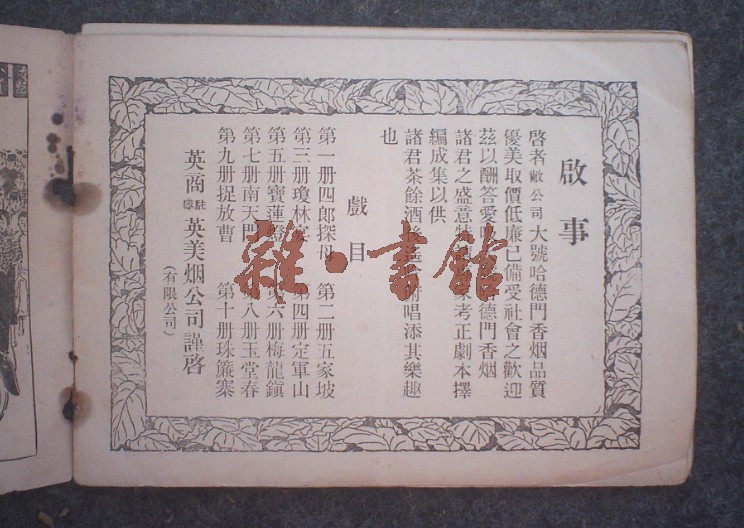 啟事
啓者敝公司大號哈德門香烟品質
優美取價低廉已備受社會之歡迎
茲以酬答愛 哈德門香烟
諸君之盛意特 考正劇本擇
編成集以供
諸君茶餘酒後 唱添其樂趣
也
戲目
第一册四郎探母 第二册五家坡
第三册瓊林宴 第四册定軍山
第五册寶蓮燈 第六册梅龍鎮
第七册南天門 第八册玉堂春
第九册捉放曹 第十册珠簾寨
英商駐華英美烟公司謹啓
(有限公司)
雜·書館